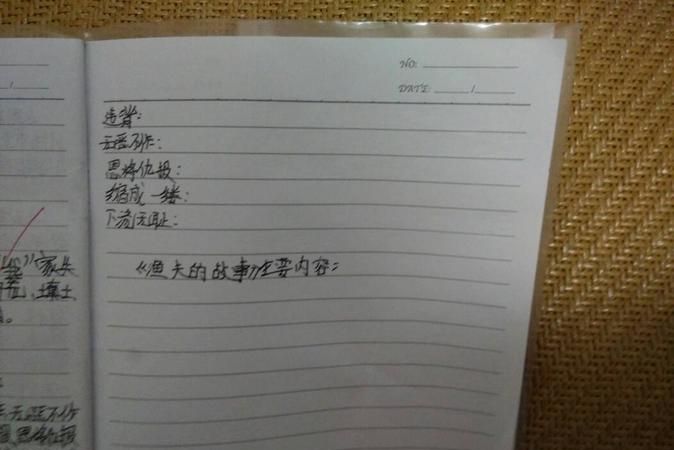 NO:
DATE: /
违背：
无恶不作：
恩将仇报：
缩成一缕：
下流无耻：
《渔夫的故事》主要内容：
/
"家失
土
无恶不作
恩将仇报